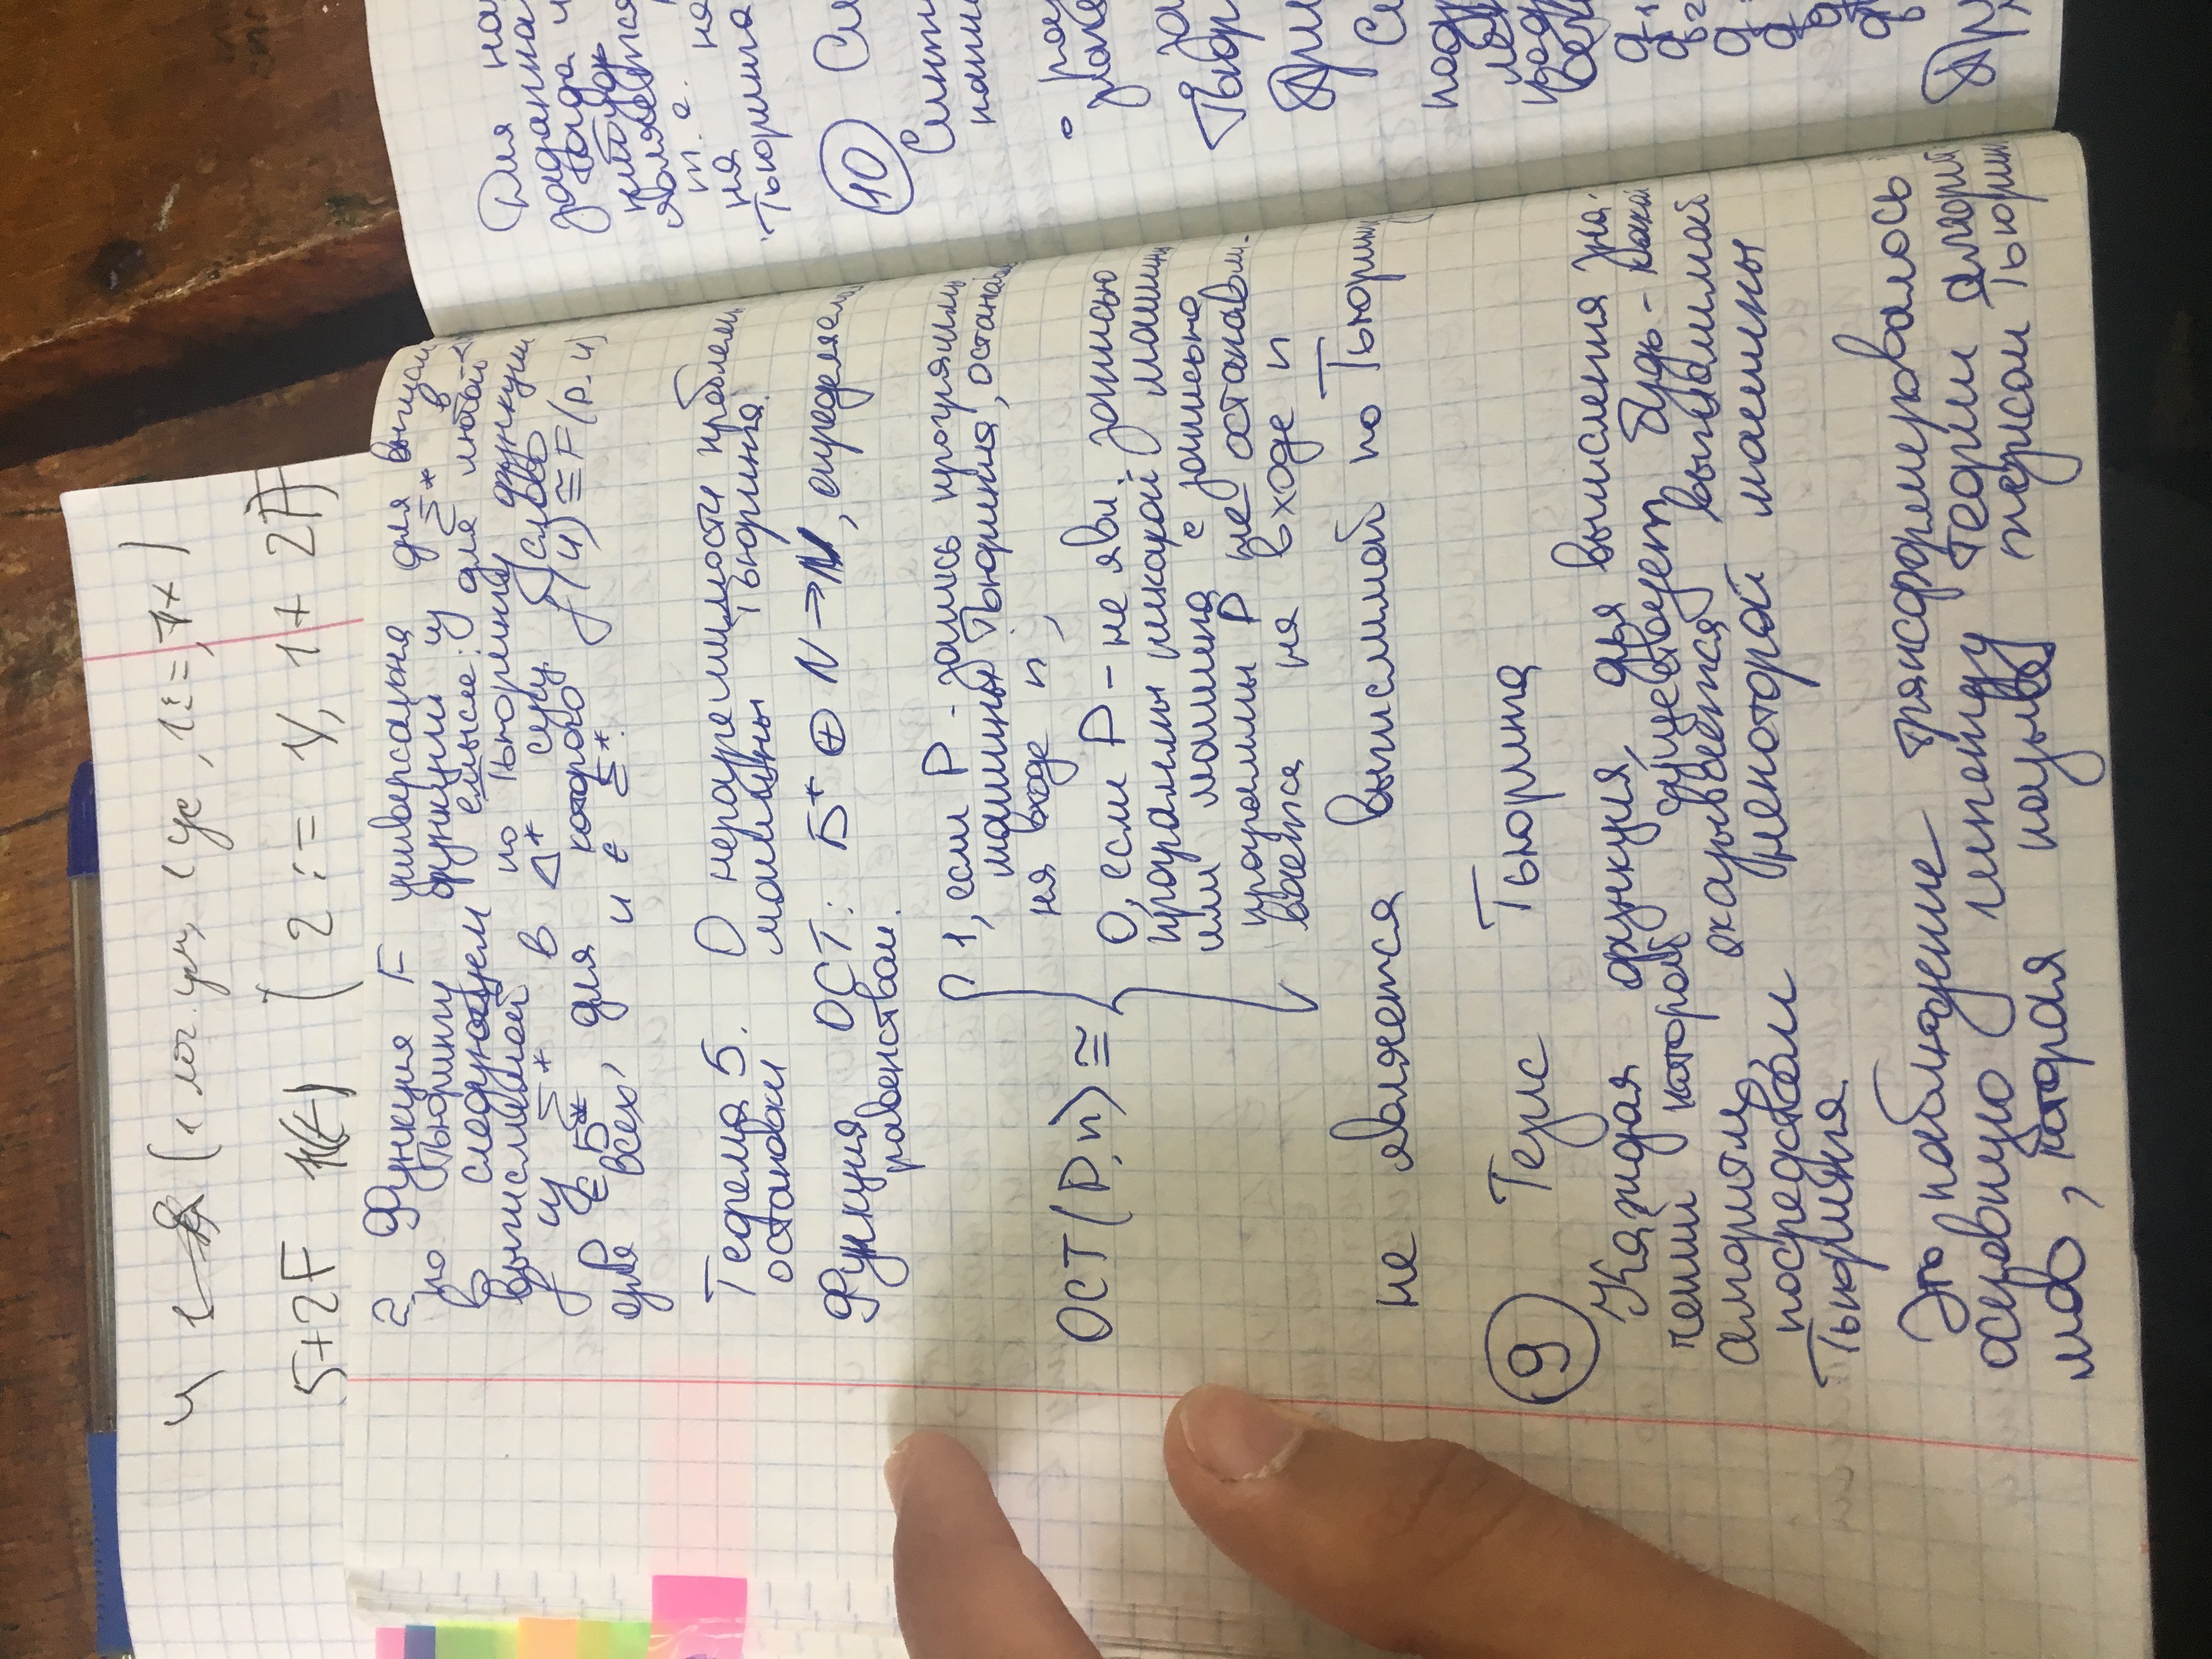 4 1 (1 лог. ум, 1 ус, 1:=, 1+)
5+2F (2 := 1/, 1+ 2F)
2. Функция F универсальна для вычисл
по Тьюрингу функций из Σ* в
в следующем смысле: для любой
вычислимой по Тьюрингу функции
f из Σ* в Δ* сущ. слово
P ∈ Б*, для которого f(u) ≅ F(P, u)
для всех u ∈ Σ*.
Теорема 5. О неразрешимости проблемы
остановки машины Тьюринга.
Функция ОСТ: Б* ⊕ N → N, определяемая
равенством.
ОСТ(P, n) ≅
1, если P - запись программы
машины Тьюринга, останав
на входе n;
0, если P - не явл. записью
программы никакой машины
или машина с записью
программы P не останавли-
вается на входе n
не является вычислимой по Тьюрингу
9 Тезис Тьюринга
Каждая функция, для вычисления зна-
чений которой существует будь-какой
алгоритм, оказывается вычислимой
посредством некоторой машины
Тьюринга
Это наблюдение трансформировалось
основную гипотезу теории алгорит
мов, которая назыв тезисом Тьюринг
Для на
задана
тогда и
нибудь
является
т. е.
на на
Тьюринга
10 Си
Синт
напи
за
Тьюр
При
подр
q1
q2